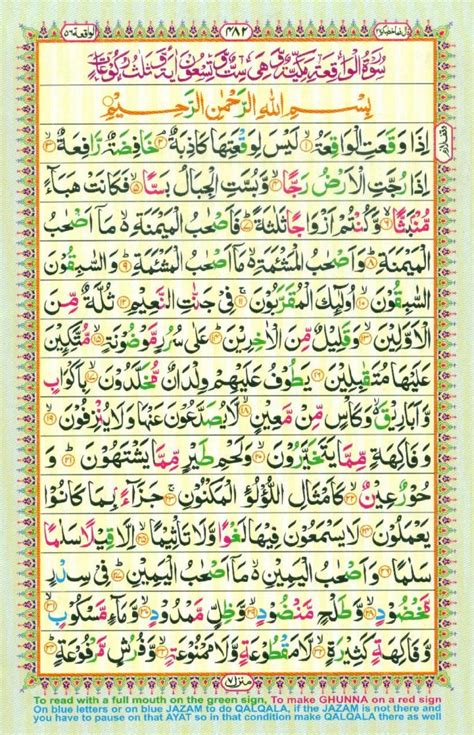 الواقعة ٥٦ ٤٨٢ قال فما خطبكم ٢٧
سُوْرَةُ الْوَاقِعَةِ مَكِّيَّةٌ وَّهِىَ سِتٌّ وَّتِسْعُوْنَ اٰيَةً وَّثَلٰثُ رُكُوْعَاتٍ
بِسْمِ اللّٰهِ الرَّحْمٰنِ الرَّحِيْمِ
اِذَا وَقَعَتِ الْوَاقِعَةُ ۙ‏﴿۱﴾ لَيْسَ لِوَقْعَتِهَا كَاذِبَةٌ ۘ‏﴿۲﴾ خَافِضَةٌ رَّافِعَةٌ ۙ‏﴿۳﴾
اِذَا رُجَّتِ الْاَرْضُ رَجًّا ۙ‏﴿۴﴾ وَّبُسَّتِ الْجِبَالُ بَسًّا ۙ‏﴿۵﴾ فَكَانَتْ هَبَآءً
مُّنْۢبَثًّا ۙ‏﴿۶﴾ وَّكُنْتُمْ اَزْوَاجًا ثَلٰثَةً ؕ‏﴿۷﴾ فَاَصْحٰبُ الْمَيْمَنَةِ ۙ مَاۤ اَصْحٰبُ
الْمَيْمَنَةِ ؕ‏﴿۸﴾ وَاَصْحٰبُ الْمَشْئَمَةِ ۙ مَاۤ اَصْحٰبُ الْمَشْئَمَةِ ؕ‏﴿۹﴾ وَالسّٰبِقُوْنَ
السّٰبِقُوْنَ ۚۙ‏﴿۱۰﴾ اُولٰٓئِكَ الْمُقَرَّبُوْنَ ۚ‏﴿۱۱﴾ فِىْ جَنّٰتِ النَّعِيْمِ‏﴿۱۲﴾ ثُلَّةٌ مِّنَ
الْاَوَّلِيْنَ ۙ‏﴿۱۳﴾ وَقَلِيْلٌ مِّنَ الْاٰخِرِيْنَ ؕ‏﴿۱۴﴾ عَلٰى سُرُرٍ مَّوْضُوْنَةٍ ۙ‏﴿۱۵﴾ مُّتَّكِئِيْنَ
عَلَيْهَا مُتَقٰبِلِيْنَ‏﴿۱۶﴾ يَطُوْفُ عَلَيْهِمْ وِلْدَانٌ مُّخَلَّدُوْنَ ۙ‏﴿۱۷﴾ بِاَكْوَابٍ
وَّاَبَارِيْقَ ۙ وَكَاْسٍ مِّنْ مَّعِيْنٍ ۙ‏﴿۱۸﴾ لَّا يُصَدَّعُوْنَ عَنْهَا وَلَا يُنْزِفُوْنَ ۙ‏﴿۱۹﴾
وَفَاكِهَةٍ مِّمَّا يَتَخَيَّرُوْنَ ۙ‏﴿۲۰﴾ وَلَحْمِ طَيْرٍ مِّمَّا يَشْتَهُوْنَ ؕ‏﴿۲۱﴾
وَحُوْرٌ عِيْنٌ ۙ‏﴿۲۲﴾ كَاَمْثَالِ اللُّؤْلُؤِ الْمَكْنُوْنِ ۚ‏﴿۲۳﴾ جَزَآءًۢ بِمَا كَانُوْا
يَعْمَلُوْنَ‏﴿۲۴﴾ لَا يَسْمَعُوْنَ فِيْهَا لَغْوًا وَّلَا تَاْثِيْمًا ۙ‏﴿۲۵﴾ اِلَّا قِيْلًا سَلٰمًا
سَلٰمًا‏﴿۲۶﴾ وَاَصْحٰبُ الْيَمِيْنِ ۙ مَاۤ اَصْحٰبُ الْيَمِيْنِ ؕ‏﴿۲۷﴾ فِىْ سِدْرٍ
مَّخْضُوْدٍ ۙ‏﴿۲۸﴾ وَّطَلْحٍ مَّنْضُوْدٍ ۙ‏﴿۲۹﴾ وَّظِلٍّ مَّمْدُوْدٍ ۙ‏﴿۳۰﴾ وَّمَآءٍ مَّسْكُوْبٍ ۙ‏﴿۳۱﴾
وَّفَاكِهَةٍ كَثِيْرَةٍ ۙ‏﴿۳۲﴾ لَّا مَقْطُوْعَةٍ وَّلَا مَمْنُوْعَةٍ ۙ‏﴿۳۳﴾ وَّفُرُشٍ مَّرْفُوْعَةٍ ؕ‏﴿۳۴﴾
منزل ٧
To read with a full mouth on the green sign, To make GHUNNA on a red sign
On blue letters or on blue JAZAM to do QALQALA, if the JAZAM is not there and
you have to pause on that AYAT so in that condition make QALQALA there as well